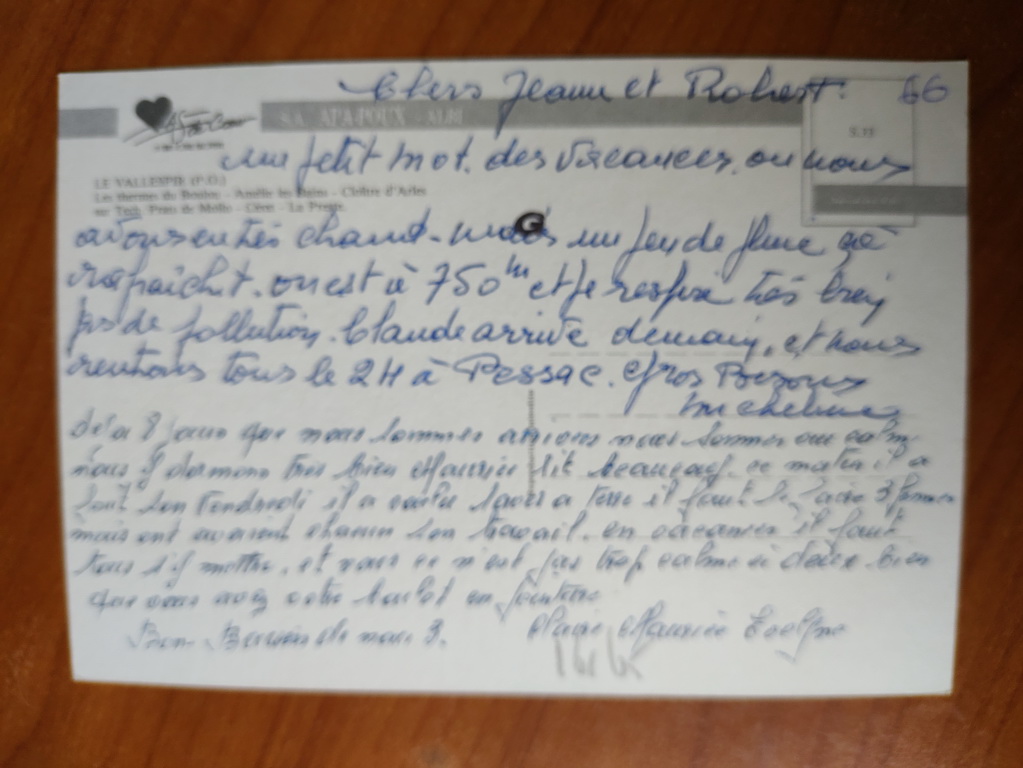 Chers Jeanne et Robert. 66
S.A. APA-POUX - ALBI
un petit mot des vacances, ou nous
LE VALLESPIR (P.O.)
Les thermes du Boulou - Amélie les Bains - Cloître d'Arles
sur Tech, Prats de Mollo - Céret - La Preste.
avons eu très chaud - mais un peu de pluie çà
rafraichit. on est à 750 m et je respire très bien
pas de pollution. Claude arrive demain, et nous
rentrons tous le 24 à Pessac. Gros Bisous
Micheline
8 jours que nous sommes nous sommes au calme
nous y dormons très bien Maurice lit beaucoup. ce matin il a
fait son vendredi il a voulu laver a terre il faut le faire
mais ont avaient chacun son travail. en vacances il faut
tous s'y mettre. et vous ce n'est pas trop calme à deux. bien
que vous avez votre boulot en
Bons Baisers de nous 3. Maurice